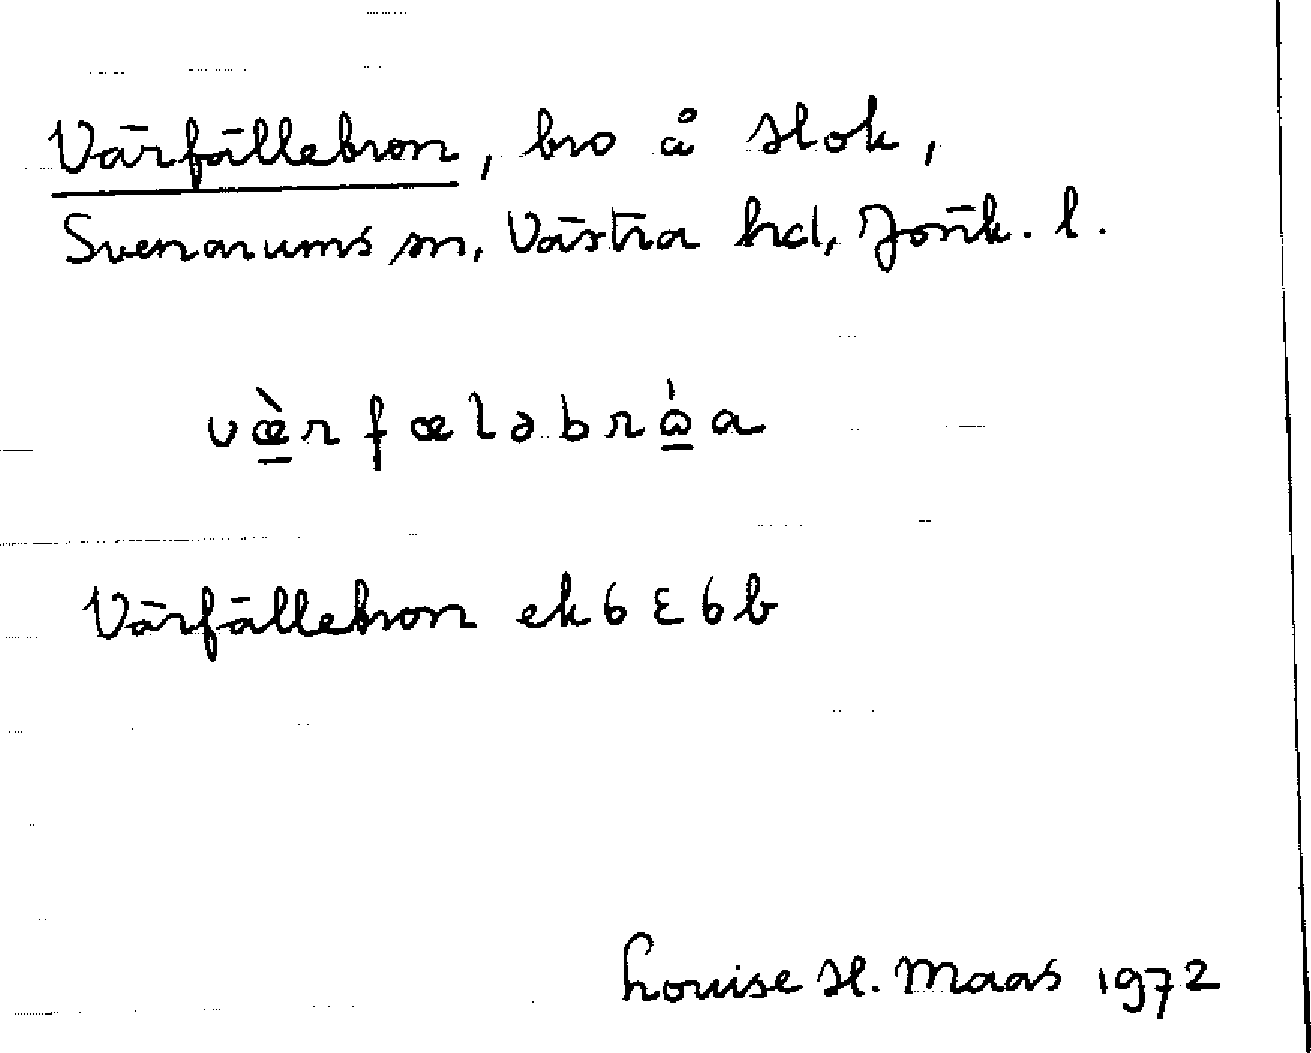 Värfällebron, bro å Hok,
Svenarums sn, Västra hd, Jönk. l.
væ̀rfæləbrὼa
Värfällebron ek 6 E 6 b
Louise H. Maas 1972